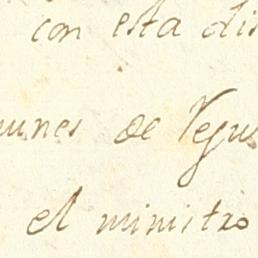 con esta dis
munes de Tegu
el ministro